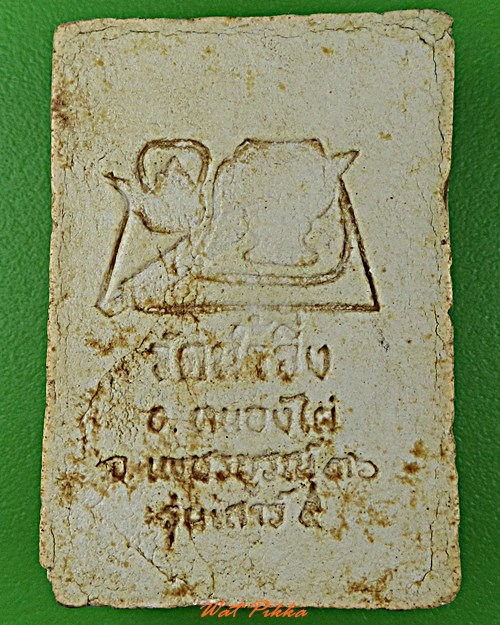 อ. หนองไผ่
จ. เพชรบูรณ์ ๓๖
รุ่นเสาร์ ๕
Wat Pikka